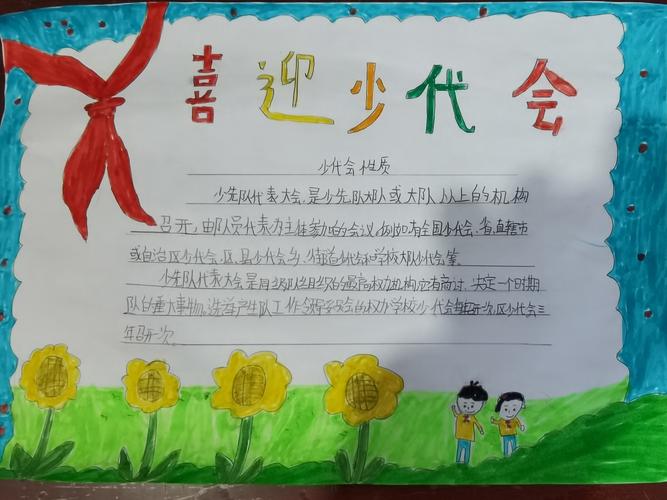 喜迎少代会
少代会性质
少先队代表大会,是少先队大队或大队以上的机构
召开,由队员代表为主体参加的会议,例如有全国少代会.省.直辖市
或自治区少代会.区.县少代会.乡、街道少代会和学校大队少代会等。
少先队代表大会是同级队组织的最高权力机构,它有商讨.决定一个时期
队的重大事物.选举产生队工作领导委员会的权力学校少代会每年召开一次.区少代会三
年召开一次.